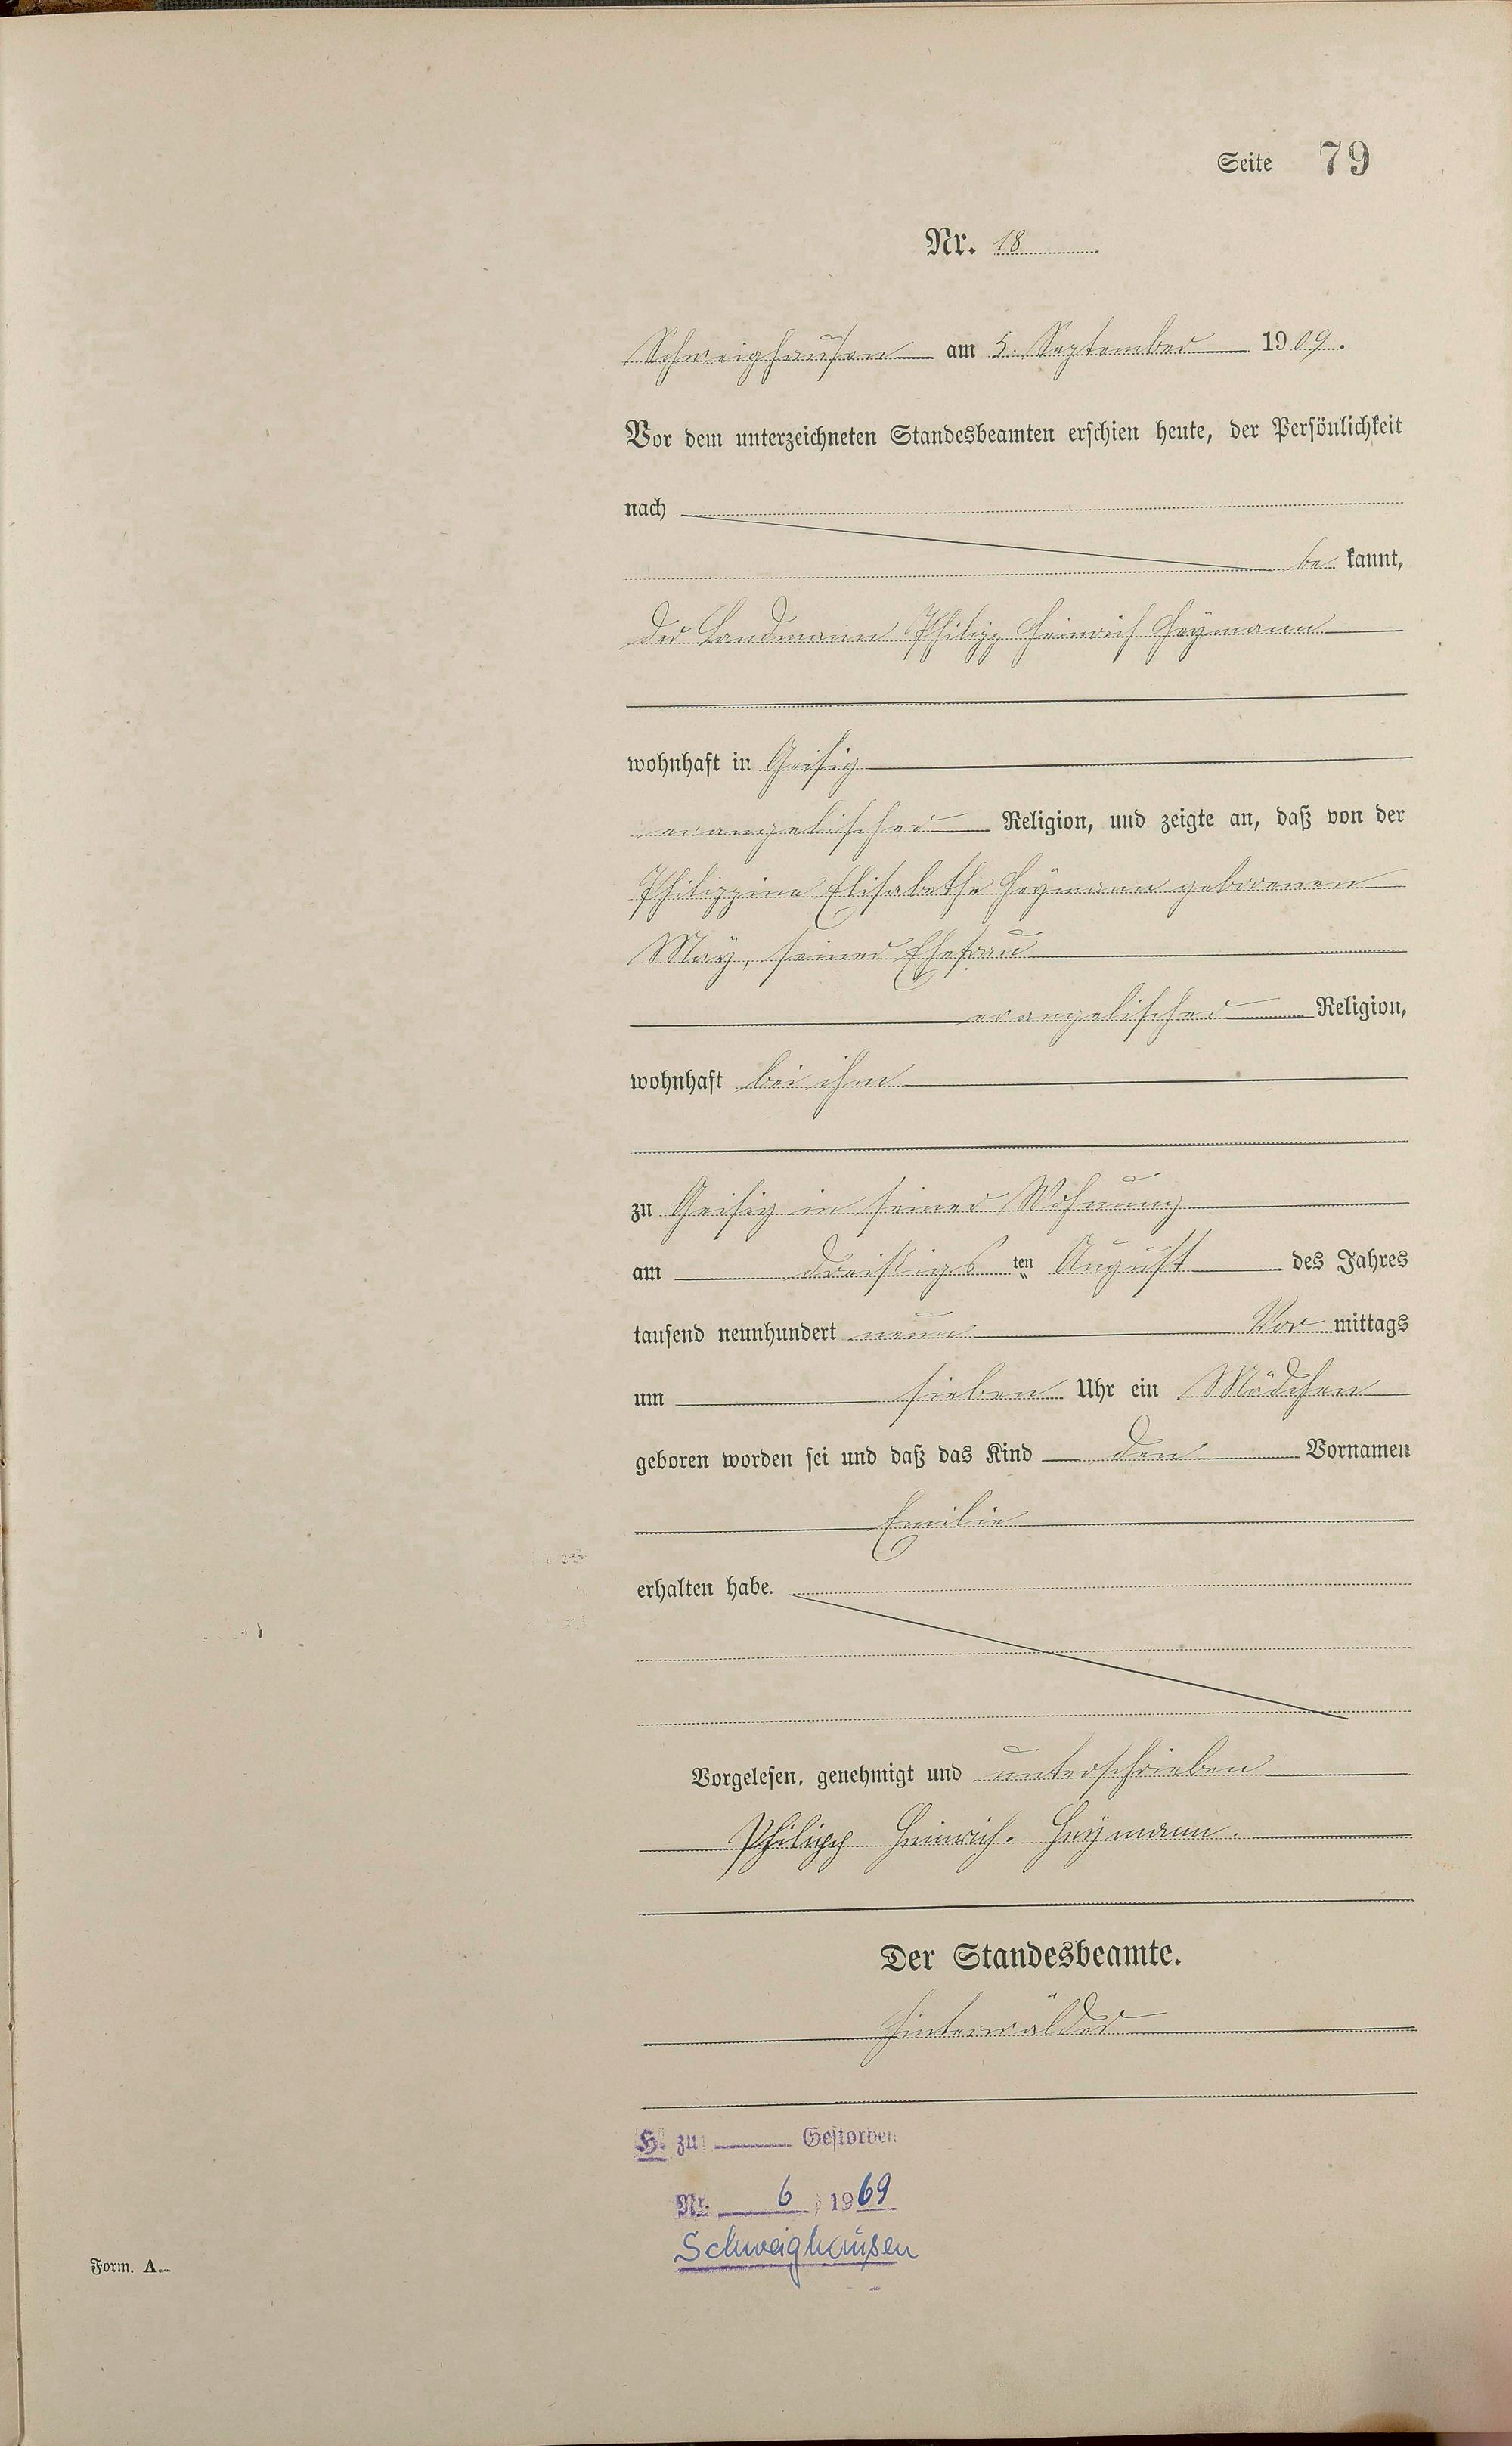 Seite 79
Nr. 18
Schweighausen am 5. September 1909.
Vor dem unterzeichneten Standesbeamten erschien heute, der Persönlichkeit
nach
be kannt,
der Landmann Philipp Heinrich Heymann
wohnhaft in Geisig
evangelischer Religion, und zeigte an, daß von der
Philippine Elisabethe Heymann geborenen
May, seiner Ehefrau
evangelischer Religion,
wohnhaft bei ihm
zu Geisig in seiner Wohnung
am dreißigs ten August des Jahres
tausend neunhundert neun Vor mittags
um sieben Uhr ein Mädchen
geboren worden sei und daß das Kind den Vornamen
Emilie
erhalten habe.
Vorgelesen, genehmigt und unterschrieben
Philipp Heinrich. Heymann.
Der Standesbeamte.
Hinterwälder
H. zu: Gestorben
Nr. 6 / 1969
Schweighausen
Form. A.